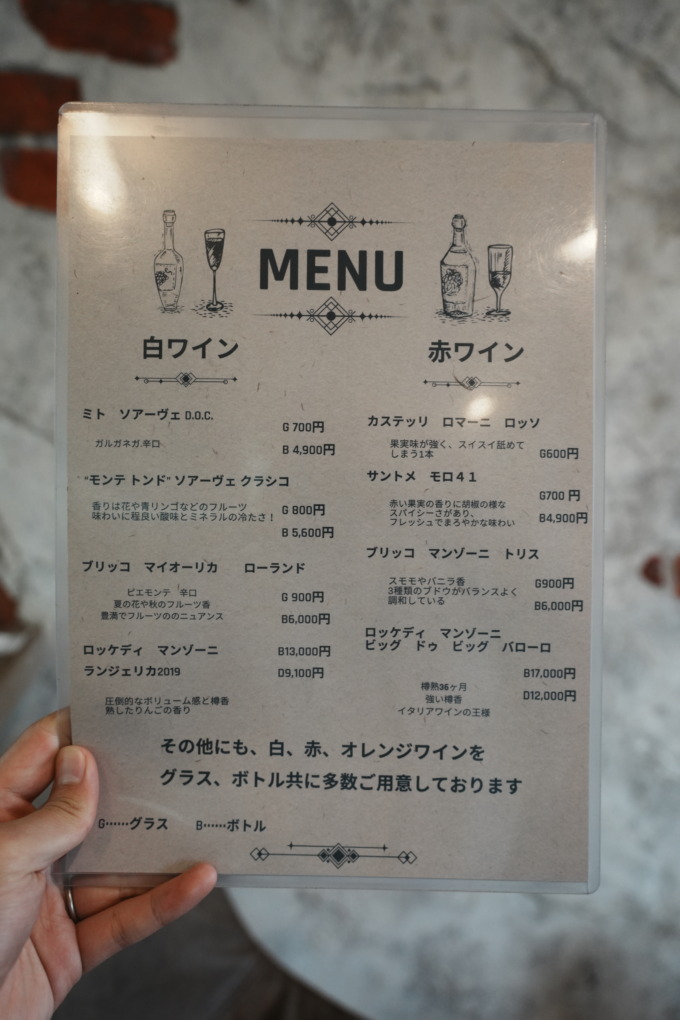 MENU
白ワイン
ミト ソアーヴェ D.O.C.
G 700円
ガルガネガ.辛口
B 4,900円
"モンテ トンド" ソアーヴェ クラシコ
香りは花や青リンゴなどのフルーツ
G 800円
味わいに程良い酸味とミネラルの冷たさ！
B 5,600円
ブリッコ マイオーリカ ローランド
ピエモンテ 辛口
G 900円
夏の花や秋のフルーツ香
豊満でフルーツののニュアンス
B6,000円
ロッケディ マンゾーニ
B13,000円
ランジェリカ2019
D9,100円
圧倒的なボリューム感と樽香
熟したりんごの香り
赤ワイン
カステッリ ロマーニ ロッソ
果実味が強く、スイスイ舐めて
しまう1本
G600円
サントメ モロ４１
G700 円
赤い果実の香りに胡椒の様な
スパイシーさがあり、
B4,900円
フレッシュでまろやかな味わい
ブリッコ マンゾーニ トリス
スモモやバニラ香
G900円
3種類のブドウがバランスよく
調和している
B6,000円
ロッケディ マンゾーニ
ビッグ ドゥ ビッグ バローロ
B17,000円
樽熟36ヶ月
D12,000円
強い樽香
イタリアワインの王様
その他にも、白、赤、オレンジワインを
グラス、ボトル共に多数ご用意しております
G……グラス B……ボトル